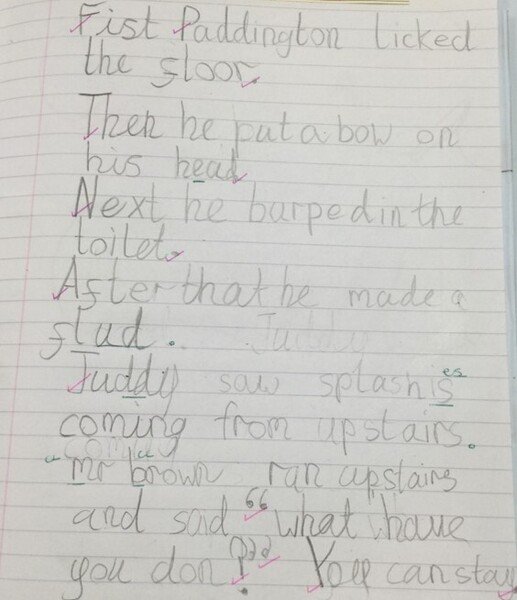 Fist Paddington licked
the floor.
Then he put a bow on
his head.
Next he burped in the
toilet.
After that he made a
flud.
Juddy saw splashis es
coming from upstairs.
mr brown ran upstairs
and sad “what have
you don?” You can stay